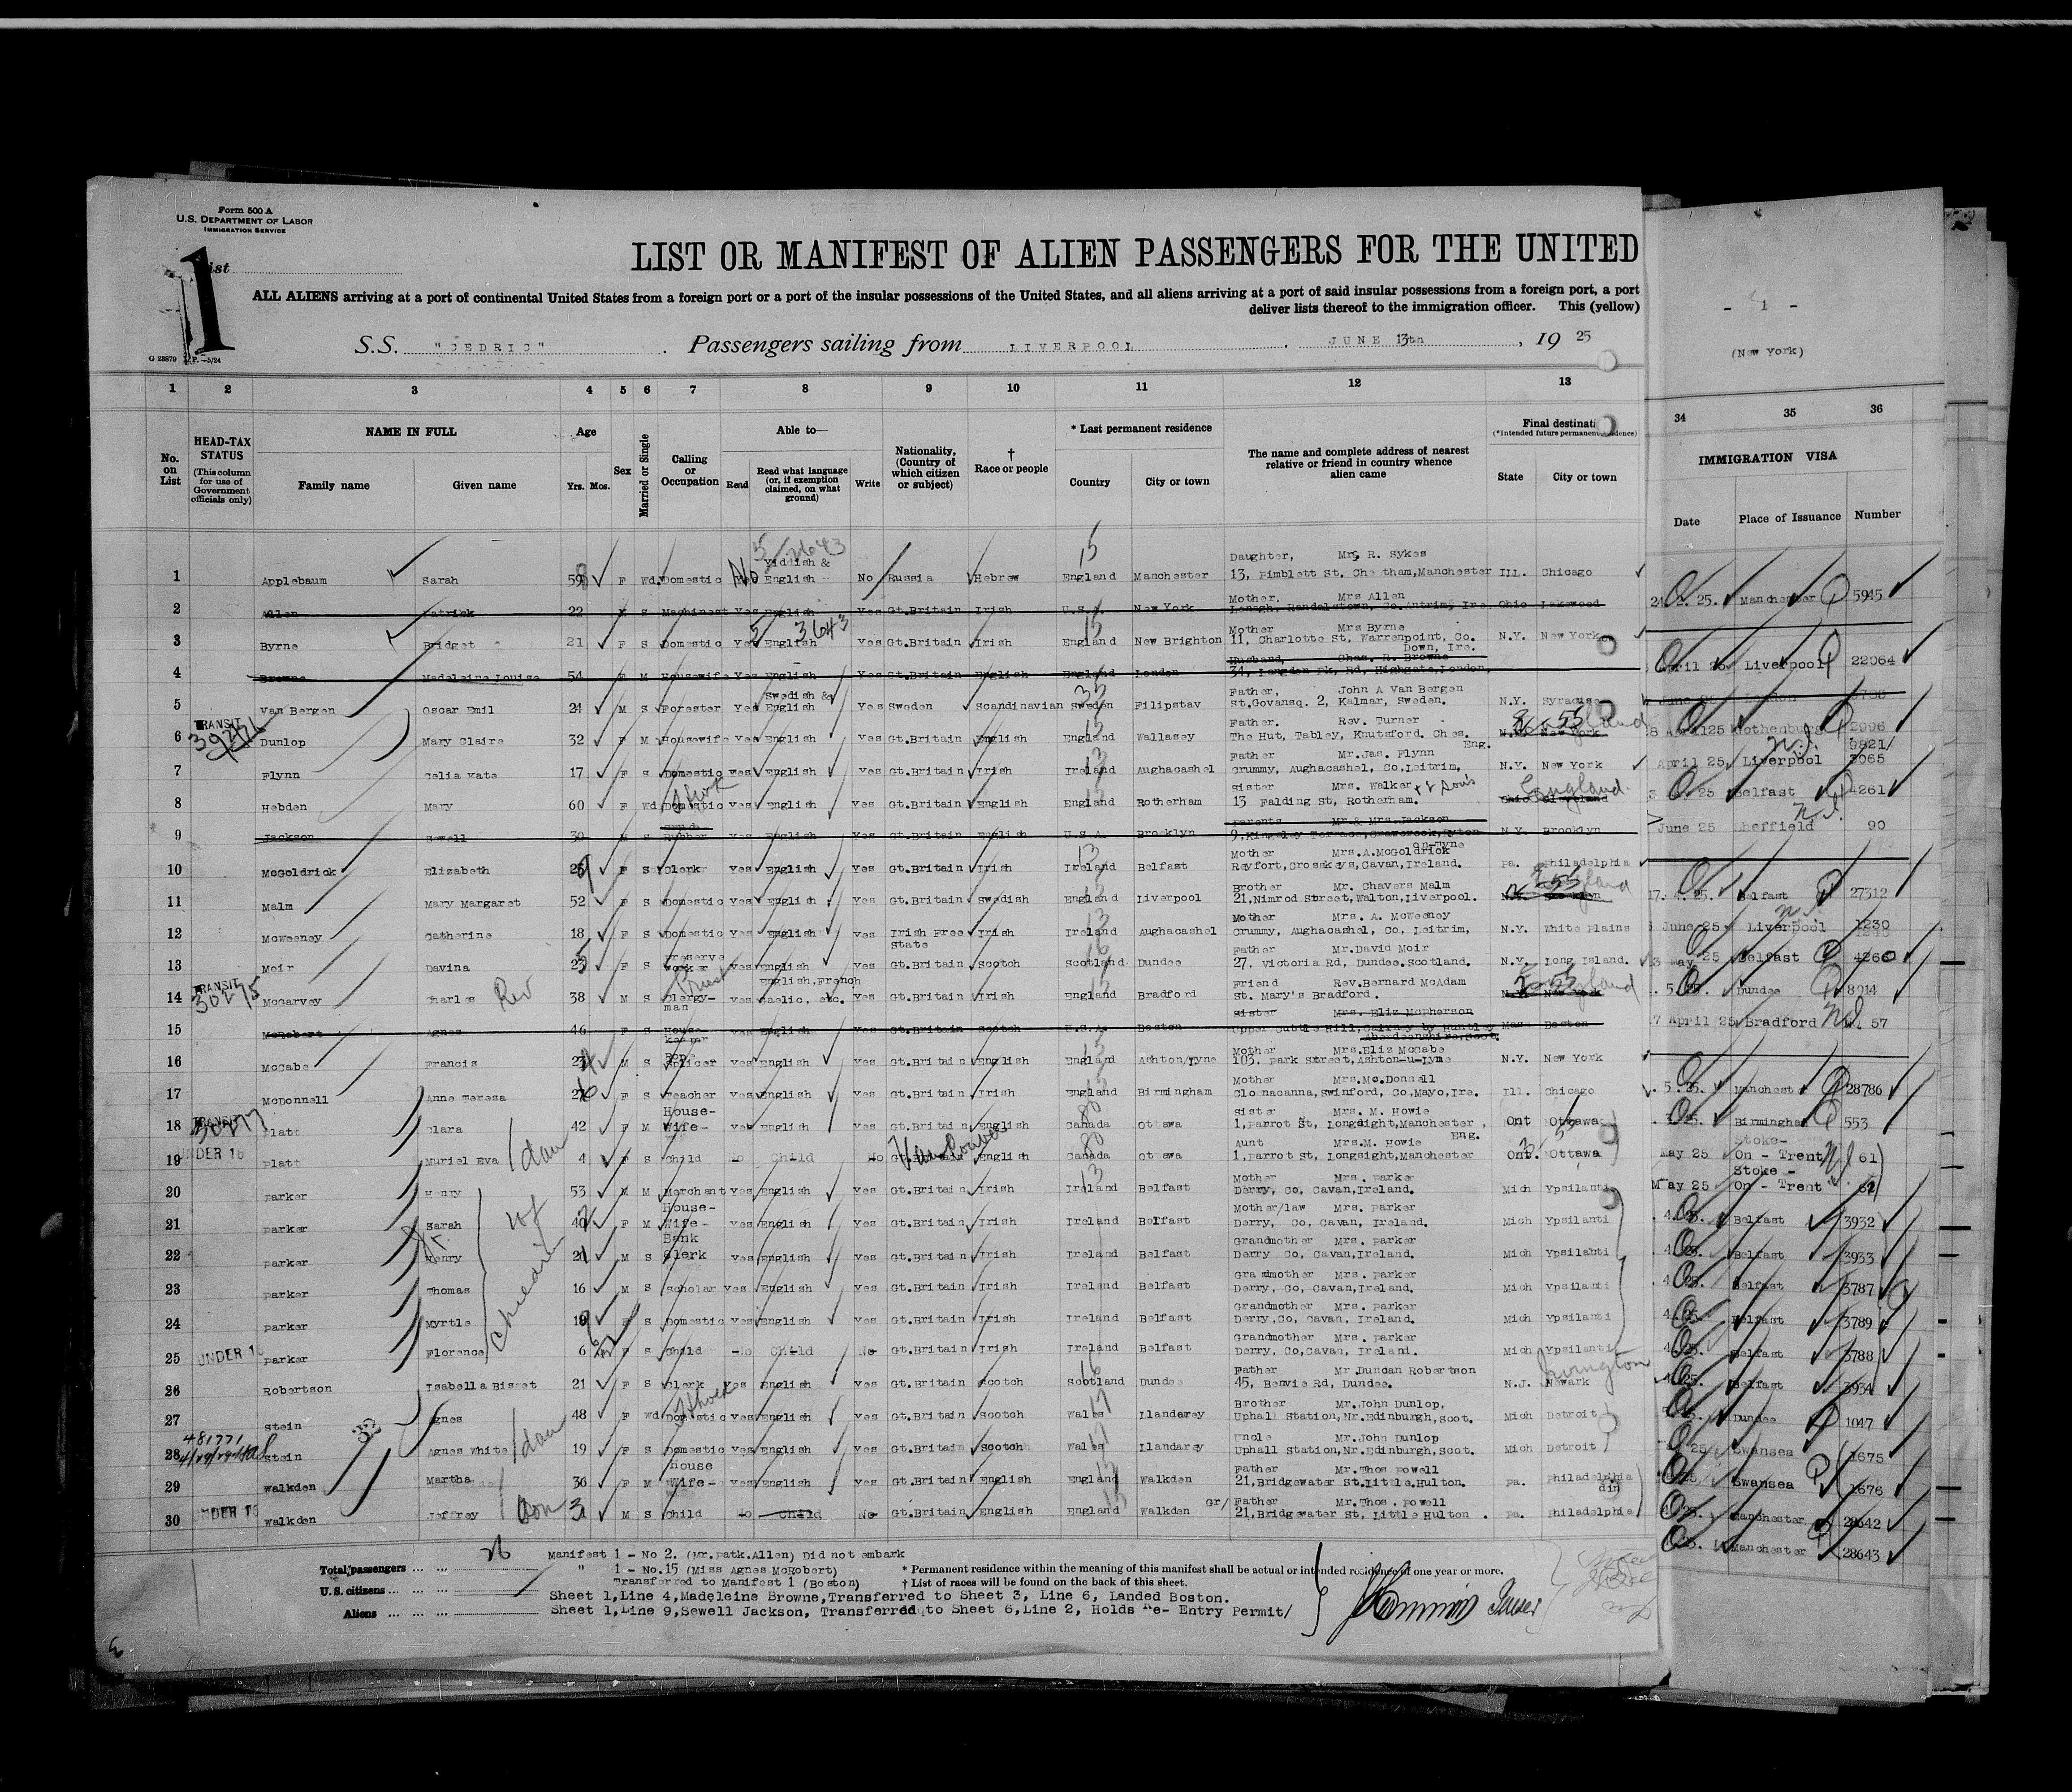 Form 500 A
U.S. DEPARTMENT OF LABOR
IMMIGRATION SERVICE
1
List
LIST OR MANIFEST OF ALIEN PASSENGERS FOR THE UNITED
ALL ALIENS arriving at a port of continental United States from a foreign port or a port of the insular possessions of the United States, and all aliens arriving at a port of said insular possessions from a foreign port, a port
deliver lists thereof to the immigration officer. This (yellow)
S.S. "CEDRIC" Passengers sailing from LIVERPOOL, JUNE 13th, 1925
- 1 -
(New York)
1 2 3 4 5 6 7 8 9 10 11 12 13 34 35 36
No. on List
HEAD-TAX STATUS
(This column for use of Government officials only)
NAME IN FULL
Family name Given name
Age
Yrs. Mos.
Sex
Married or Single
Calling or Occupation
Able to—
Read Read what language (or, if exemption claimed, on what ground) Write
Nationality, (Country of which citizen or subject)
† Race or people
* Last permanent residence
Country City or town
The name and complete address of nearest relative or friend in country whence alien came
Final destinati
(*Intended future permanent residence)
State City or town
IMMIGRATION VISA
Date Place of Issuance Number
Daughter, Mrs R. Sykes
1 Applebaum Sarah 59 F Wd. Domestic No Yiddish & English No Russia Hebrew England Manchester 13, Pimblett St. Cheetham, Manchester ILL. Chicago
Mother. Mrs Allen
2 Allen Patrick 22 M S Machinest Yes English Yes Gt.Britain Irish U.S.A. New York Lenagh, Randalstown, Co.Antrim, Ire. Ohio Lakewood
Mother Mrs Byrne
3 Byrne Bridget 21 F S Domestic Yes English Yes Gt.Britain Irish England New Brighton 11, Charlotte St, Warrenpoint, Co. Down, Ire. N.Y. New York
Husband, Chas. R. Browne
4 Browne Madeleine Louise 54 F M Housewife Yes English Yes Gt.Britain English England London 34, Langdon Pk, Rd, Highgate, London,
Father, John A Van Bergen
5 Van Bergen Oscar Emil 24 M S Forester Yes Swedish & English Yes Sweden Scandinavian Sweden Filipstav St.Govansq. 2, Kalmar, Sweden. N.Y. Syracuse
Father. Rev. Turner
TRANSIT
6 Dunlop Mary Claire 32 F M Housewife Yes English Yes Gt.Britain English England Wallasey The Hut, Tabley, Knutsford. Ches. Eng. N.Y. New York England
Father Mr.Jas. Flynn
7 Flynn Celia Kate 17 F S Domestic Yes English Yes Gt.Britain Irish Ireland Aughacashel Crummy, Aughacashel, Co.Leitrim, N.Y. New York
Sister Mrs. Walker
8 Hebden Mary 60 F Wd Domestic Yes English Yes Gt.Britain English England Rotherham 13 Falding St, Rotherham. Ohio Cleveland England
Parents Mr.& Mrs.Jackson
9 Jackson Sewell 30 M S Rubber Yes English Yes Gt.Britain English U.S.A. Brooklyn 9, Kingsley Terrace, Crawcrook, Ryton on-Tyne N.Y. Brooklyn
Mother Mrs.A.McGoldrick
10 McGoldrick Elizabeth F S Clerk Yes English Yes Gt.Britain Irish Ireland Belfast Reyfort, Crosskeys, Cavan, Ireland. Pa. Philadelphia
Brother Mr. Chavers Malm
11 Malm Mary Margaret 52 F S Domestic Yes English Yes Gt.Britain Swedish England Liverpool 21, Nimrod Street, Walton, Liverpool. England
Mother Mrs. A. McWeeney
12 McWeeney Catherine 18 F S Domestic Yes English Yes Irish Free State Irish Ireland Aughacashel Crummy, Aughacashel, Co, Leitrim, N.Y. White Plains
Father Mr.David Moir
13 Moir Davina F S Preserve Worker Yes English Yes Gt.Britain Scotch Scotland Dundee 27, Victoria Rd, Dundee.Scotland. N.Y. Long Island.
Friend Rev.Bernard McAdam
TRANSIT 30275
14 McGarvey Charles Rev 38 M S Clergy-man Priest Yes English, French Gaelic, etc. Yes Gt.Britain Irish England Bradford St. Mary's Bradford. N.Y. New York England
Sister Mrs. Eliz McPherson
15 McRobert Agnes 46 F S House-keeper Yes English Yes Gt.Britain Scotch U.S.A. Boston Upper Cuttle Hill, Cairney by Huntley Aberdeenshire, Scot. Mass Boston
Mother Mrs.Eliz McCabe
16 McCabe Francis M S Officer Yes English Yes Gt.Britain English England Ashton/Lyne 103, Park Street, Ashton-u-Lyne N.Y. New York
Mother Mrs.Mc.Donnell
17 McDonnell Anne Teresa F S Teacher Yes English Yes Gt.Britain Irish England Birmingham Clonacanna, Swinford, Co, Mayo, Ire. Ill. Chicago
Sister Mrs. M. Howie
TRANSIT 30277
18 Platt Clara 42 F M House-Wife- Yes English Yes Gt.Britain English Canada Ottawa 1, Parrot St, Longsight, Manchester, Eng. Ont Ottawa
Aunt Mrs.M. Howie
UNDER 16
19 Platt Muriel Eva dau 4 F S Child No Child No Gt.Britain English Canada Ottawa 1, Parrot St, Longsight, Manchester Ont. Ottawa
Mother Mrs. Parker
20 Parker Henry 53 M M Merchant Yes English Yes Gt.Britain Irish Ireland Belfast Derry, Co, Cavan, Ireland. Mich Ypsilanti
Mother/law Mrs. Parker
21 Parker Sarah wf F M House-Wife- Yes English Yes Gt.Britain Irish Ireland Belfast Derry, Co, Cavan, Ireland. Mich Ypsilanti
Grandmother Mrs. Parker
22 Parker Jr. Henry 21 M S Bank Clerk Yes English Yes Gt.Britain Irish Ireland Belfast Derry Co, Cavan, Ireland. Mich Ypsilanti
Grandmother Mrs. Parker
23 Parker Thomas children 16 M S Scholar Yes English Yes Gt.Britain Irish Ireland Belfast Derry, Co, Cavan, Ireland. Mich Ypsilanti
Grandmother Mrs. Parker
24 Parker Myrtle F S Domestic Yes English Yes Gt.Britain Irish Ireland Belfast Derry, Co, Cavan, Ireland. Mich Ypsilanti
Grandmother Mrs. Parker
25 UNDER 16 Parker Florence 6 F S Child No Child No Gt.Britain Irish Ireland Belfast Derry, Co, Cavan, Ireland. Mich Ypsilanti
Father Mr.Duncan Robertson
26 Robertson Isabella Bisset 21 F S Clerk Yes English Yes Gt.Britain Scotch Scotland Dundee 45, Benvie Rd, Dundee. N.J. Newark Irvington
Brother Mr.John Dunlop,
27 Stein Agnes 48 F Wd Domestic Yes English Yes Gt.Britain Scotch Wales Llandarey Uphall Station, Nr.Edinburgh, Scot. Mich Detroit
Uncle Mr.John Dunlop
28 Stein Agnes White dau 19 F S Domestic Yes English Yes Gt.Britain Scotch Wales Llandarey Uphall Station, Nr.Edinburgh, Scot. Mich Detroit
Father Mr.Thos Powell
29 Walkden Martha 36 F M House Wife- Yes English Yes Gt.Britain English England Walkden 21, Bridgewater St.Little.Hulton. Pa. Philadelphia
Gr/Father Mr.Thos. Powell
30 UNDER 16 Walkden Jeffrey son 3 M S Child No Child No Gt.Britain English England Walkden 21, Bridgewater St, Little Hulton. Pa. Philadelphia
24. 2. 25. Manchester 5945
April 25 Liverpool 22064
June 25 London
8 April 25 Gothenburg 2996
April 25 Liverpool 9821/3065
25 Belfast 4261
June 25 Sheffield 90
17. 4. 25. Belfast 27312
June 25 Liverpool 1230
3 May 25 Belfast 4260
5. 25. Dundee 8014
7 April 25 Bradford 57
5. 25. Manchest 28786
25. Birmingham 553
May 25 Stoke-On - Trent 61
May 25 Stoke - On - Trent 62
4. 25. Belfast 3932
4. 25. Belfast 3933
4. 25. Belfast 3787
4. 25. Belfast 3789
4. 25. Belfast 3788
4. 25. Belfast 3934
Dundee 1047
25 Swansea 1675
25 Swansea 1676
4. 25. Manchester 28642
25. Manchester 28643
Total passengers 26
U.S. citizens
Aliens
Manifest 1 - No 2. (Mr.Patk.Allen) Did not embark
" 1 - No.15 (Miss Agnes McRobert)
Transferred to Manifest 1 (Boston)
Sheet 1, Line 4, Madeleine Browne, Transferred to Sheet 3, Line 6, Landed Boston.
Sheet 1, Line 9, Sewell Jackson, Transferred to Sheet 6, Line 2, Holds Re- Entry Permit/
* Permanent residence within the meaning of this manifest shall be actual or intended residence of one year or more.
† List of races will be found on the back of this sheet.